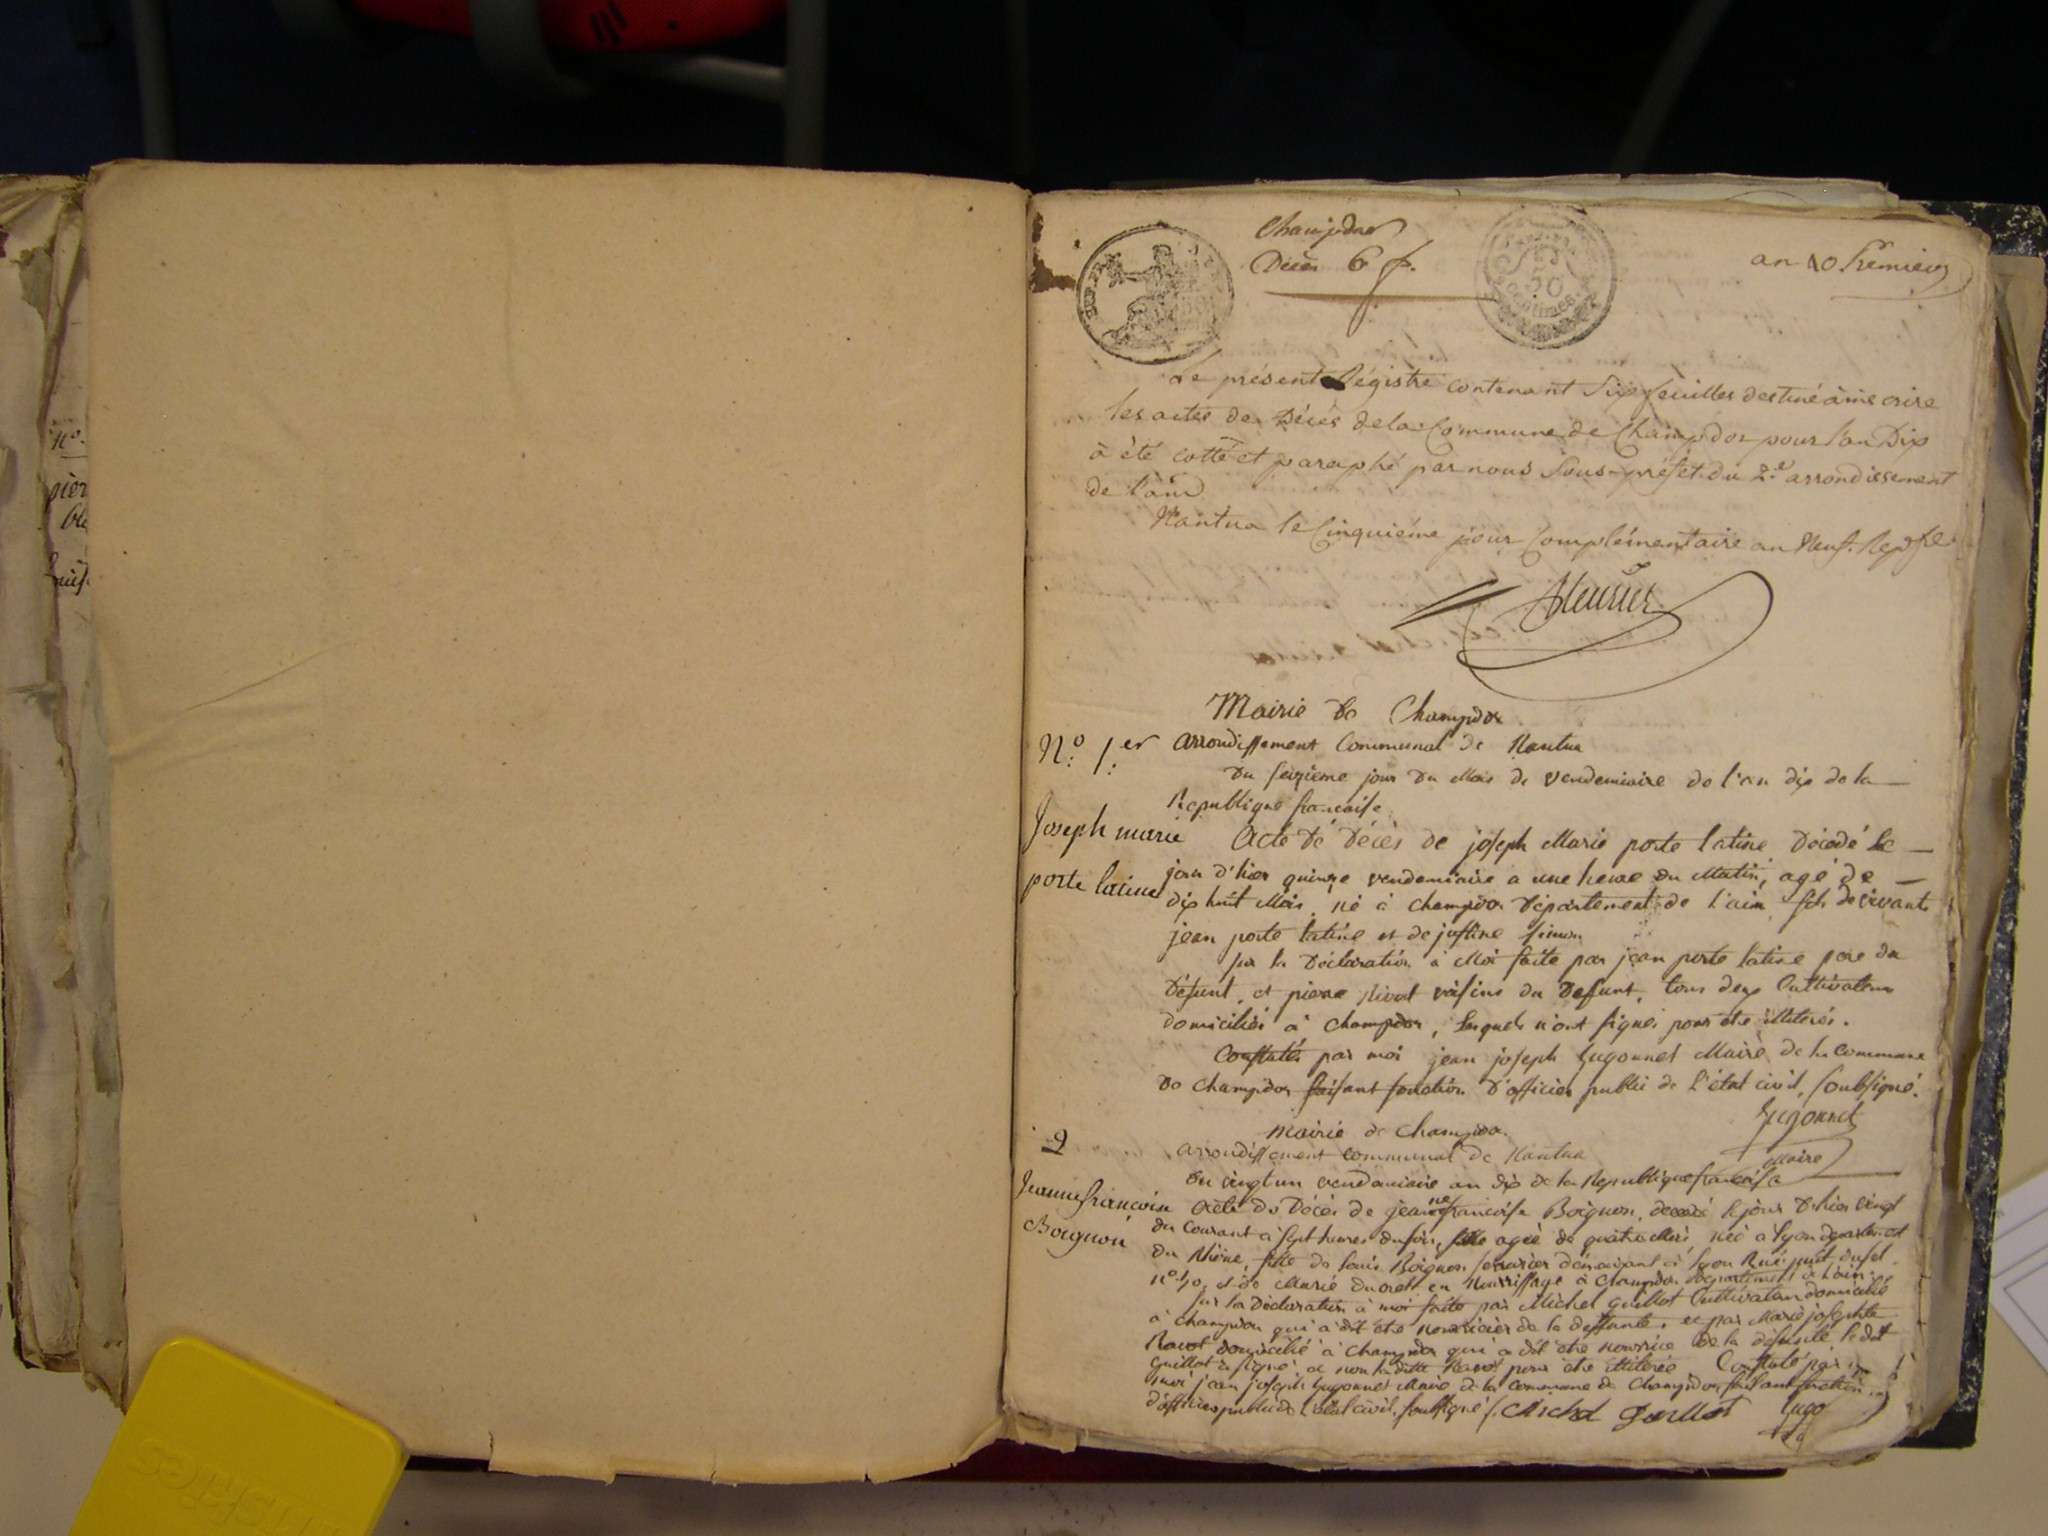 Champdor
Décès 6 f.
50
centimes
an 10 Premier
Le présent Régistre contenant Six feuilles destiné à inscrire
les actes de Décès de la Commune de Champdor pour l'an Dix
à été cotté et paraphé par nous Sous-préfet du 2.e arrondissement
de l'ain
Nantua le Cinquiéme jour Complémentaire an Neuf. Rep.
Mairie de Champdor
N.o 1.er arrondissement Communal de Nantua
Du seizieme jour du Mois de vendemiaire de l'an dix de la
Republique francaise
Joseph marie
porte latine
Acte De Décès de joseph Marie porte latine Décédé le
jour d'hier quinze vendemiaire a une heure du Matin, agé de
dix huit Mois, né à champdor Département de l'ain, fils de vivants
jean porte latine et de justine simon
sur la Déclaration à Moi faite par jean porte latine pere du
Défunt, et pierre voisins du Defunt, tous deux Cultivateurs
domiciliés à champdor, lesquels n'ont signés pour etre illiterés.
Constatés par moi jean joseph Gugonnet Maire de la commune
De champdor faisant fonction D'officier public de l'état civil, soubsigné.
Gugonnet
Maire
2
mairie de champdor
arrondissement communal de Nantua
Du vingt un vendemiaire an dix de la Republique francaise
Jeanne francoise
Boignon
Acte De Décès de jeanne francoise Boignon, decedé le jour d'hier vingt
du Courant à sept heures du soir, agée de quatre Mois, née à lyon
du Rhône, fille de louis Boignon demeurant à lyon Rue
et de Marie en Nourrissage à Champdor Département de l'ain.
sur la Déclaration à moi faite par Michel guillot Cultivateur domicilié
à champdor qui a dit etre nourricier de la deffunte, et par Marie josephte
domicilié à champdor qui a dit etre nourrice de la defunte le dit
guillot a signé et non la ditte pour etre illiterée Constaté par
moi jean joseph Gugonnet Maire de la commune de champdor faisant fonction
d'officier public de l'état civil, soussigné. Michel Guillot